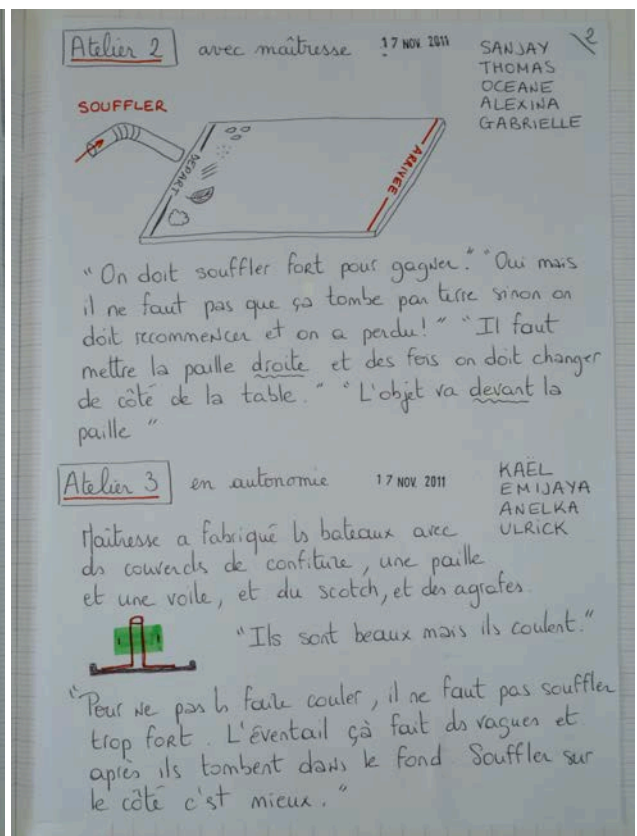 Atelier 2 avec maîtresse 17 NOV. 2011
SANJAY
THOMAS
OCEANE
ALEXINA
GABRIELLE
2
SOUFFLER
DÉPART
ARRIVÉE
"On doit souffler fort pour gagner." "Oui mais
il ne faut pas que ça tombe par terre sinon on
doit recommencer et on a perdu!" "Il faut
mettre la paille droite et des fois on doit changer
de côté de la table." "L'objet va devant la
paille"
Atelier 3 en autonomie 17 NOV. 2011
KAËL
EMIJAYA
ANELKA
ULRICK
Maîtresse a fabriqué ls bateaux avec
ds couvercls de confiture, une paille
et une voile, et du scotch, et des agrafes.
"Ils sont beaux mais ils coulent."
"Pour ne pas ls faire couler, il ne faut pas souffler
trop fort. L'éventail çà fait ds vagues et
après ils tombent dans le fond. Souffler sur
le côté c'est mieux."